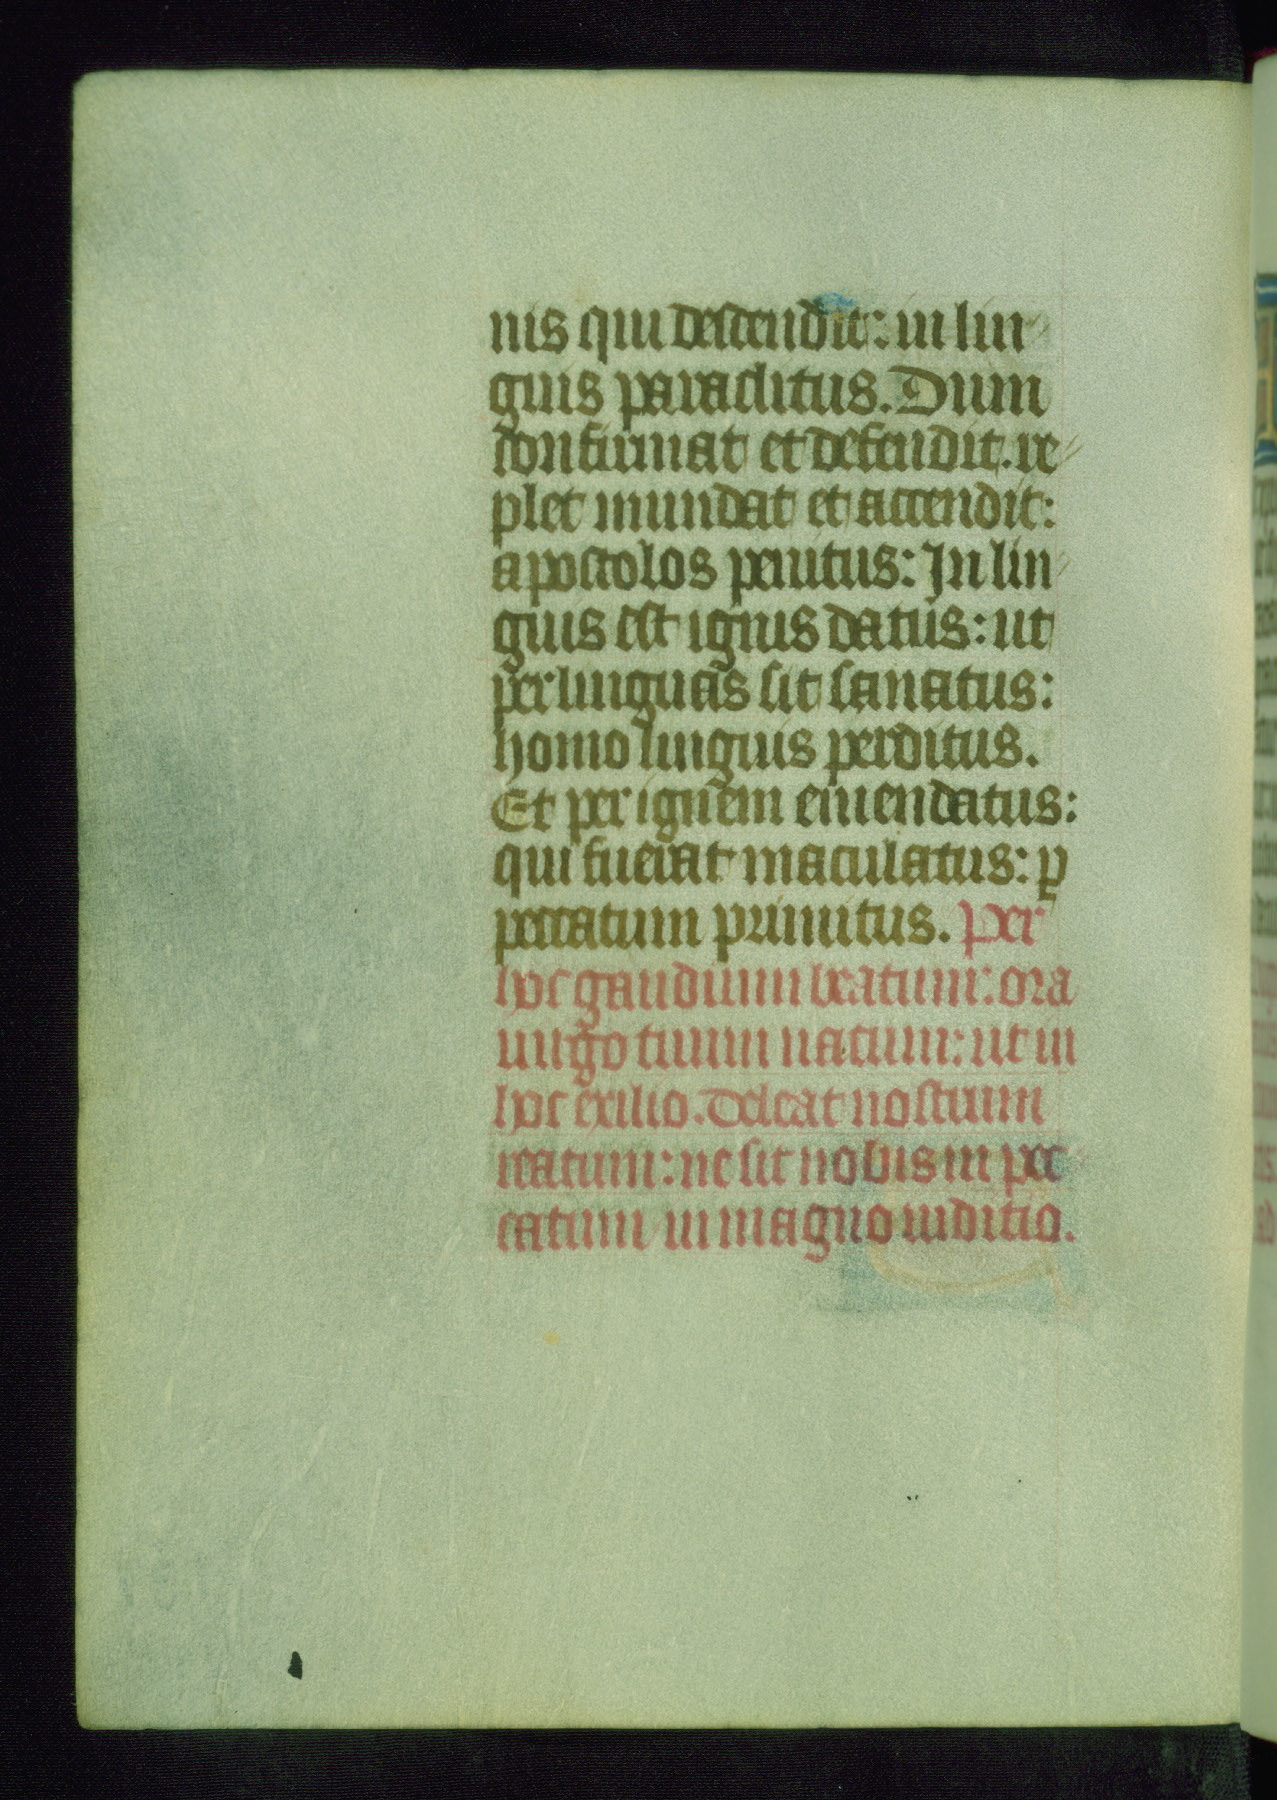 nis qui descendit: in lin-
guis paraclitus. Dum
confirmat et defendit. re-
plet mundat et accendit:
apostolos penitus: In lin-
guis est ignis datus: ut
per linguas sit sanatus:
homo linguis perditus.
Et per ignem emendatus:
qui fuerat maculatus: ꝑ
peccatum primitus. Per
hoc gaudium beatum: ora
uirgo tuum natum: ut in
hoc exilio. Deleat nostrum
reatum: ne sit nobis in pec
catum in magno iuditio.